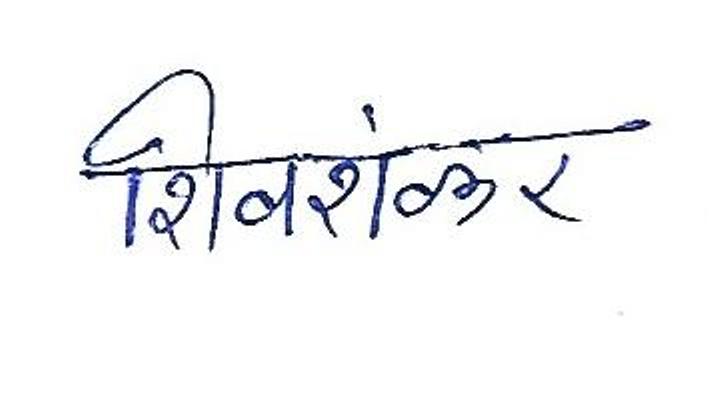 शिवशंकर